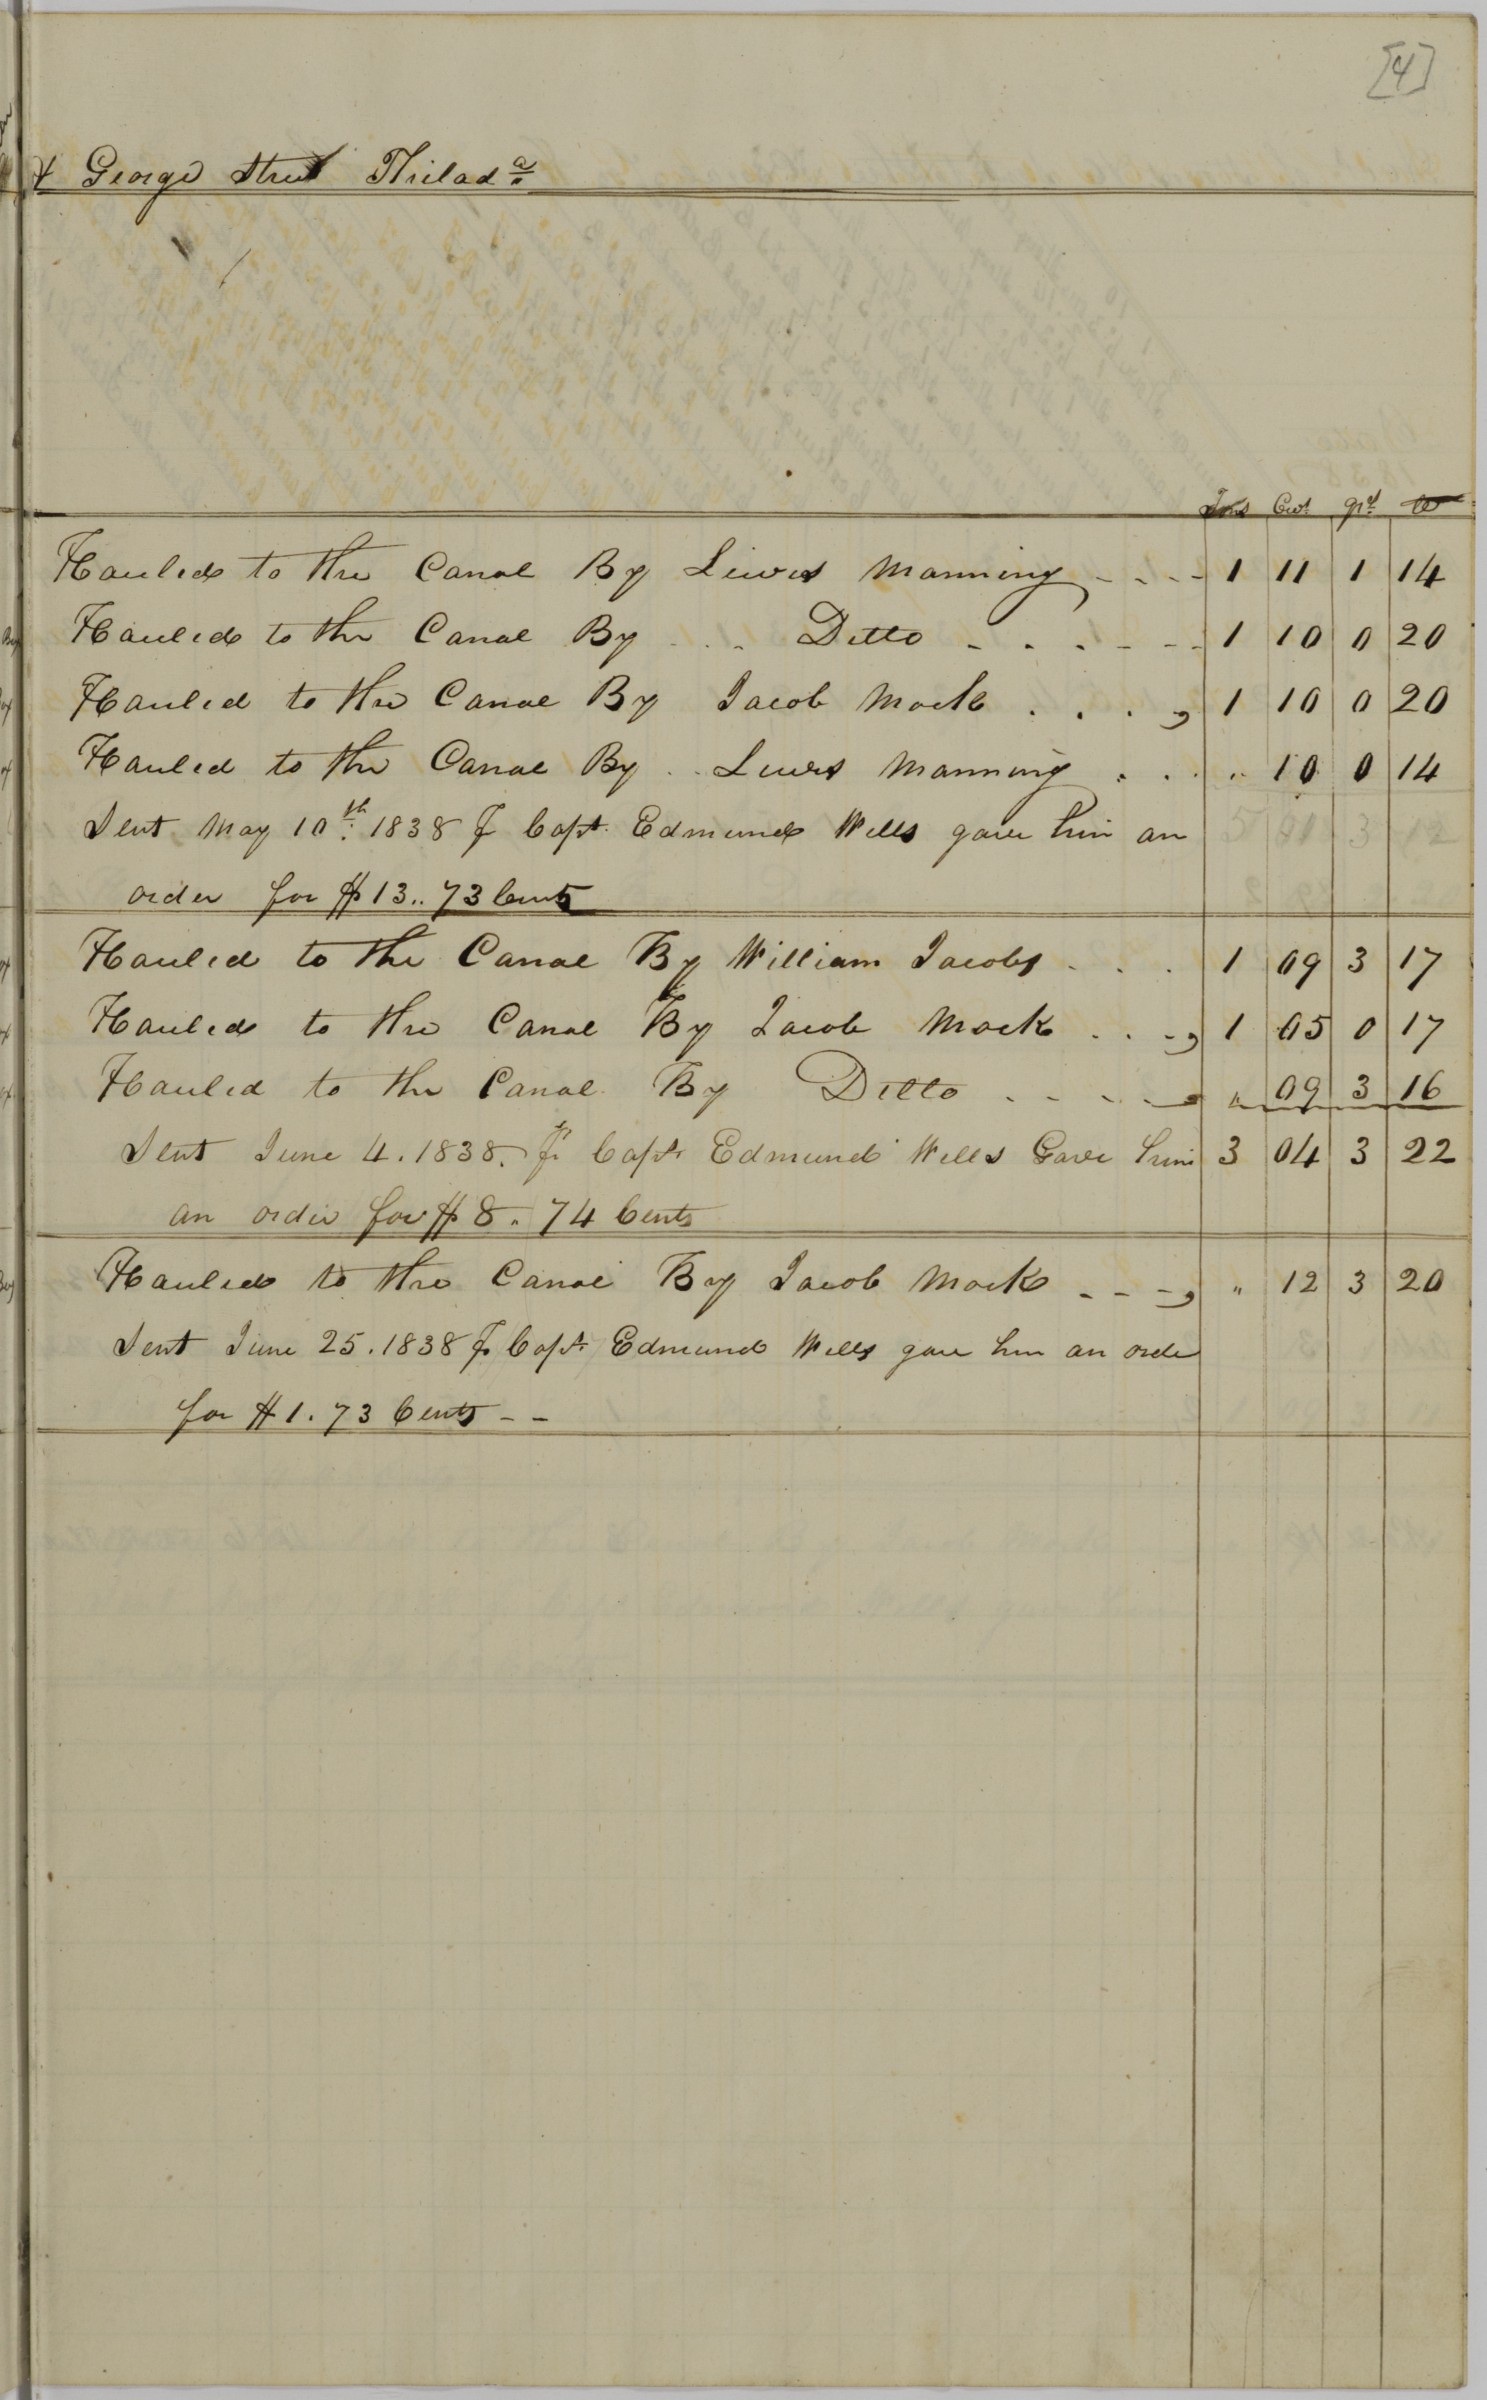 [4]
& George Street Philada
Tons Cwt qrs lb
Hauled to the Canal By Lewes Manning - - - - 1 11 1 14
Hauled to the Canal By Ditto - - - - - - 1 10 0 20
Hauled to the Canal By Jacob Mock . . . , 1 10 0 20
Hauled to the Canal By Lewes Manning . . . " 10 0 14
Sent May 10th. 1838 ⅌ Capt. Edmund Wells gave him an
order for $13.. 73 Cents
Hauled to the Canal By William Jacobs . . . 1 09 3 17
Hauled to the Canal By Jacob Mock . . - , 1 05 0 17
Hauled to the Canal By Ditto - - - - " 09 3 16
Sent June 4. 1838. ⅌ Capt. Edmund Wells Gave him 3 04 3 22
an order for $8. 74 Cents
Hauled to the Canal By Jacob Mock - - - , " 12 3 20
Sent June 25. 1838 ⅌ Capt. Edmund Wells gave him an order
for $1. 73 Cents - -